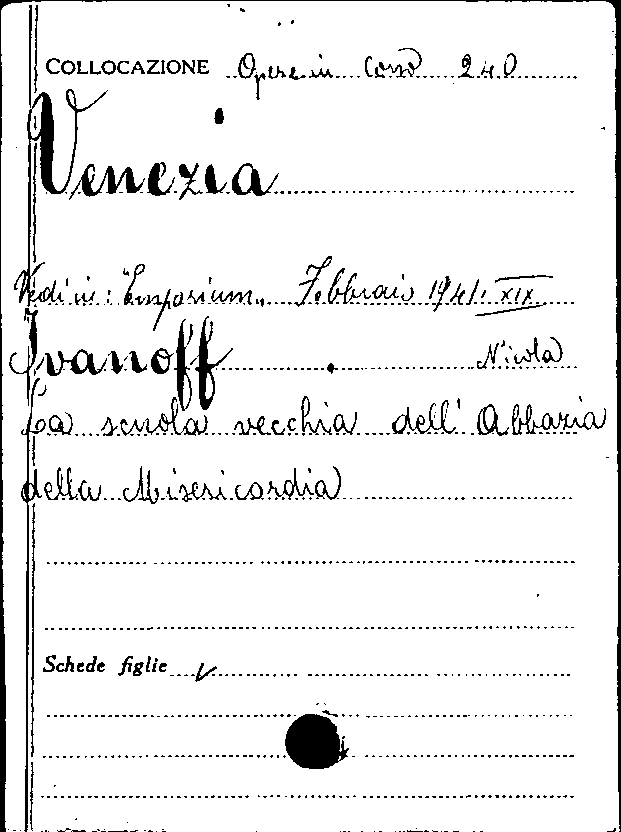 COLLOCAZIONE Opere in corso 240
Venezia
Vedi in: "Emporium" Febbraio 1941. XIX
Ivanoff Nicola
La scuola vecchia dell' Abbazia
della Misericordia
Schede figlie V